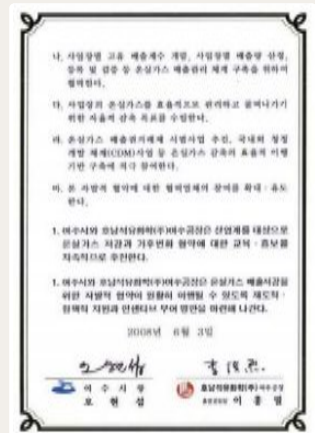 나. 사업장별 고유 배출계수 개발, 사업장별 배출량 산정,
등록 및 검증 등 온실가스 배출관리 체계 구축을 위하여
협력한다.
다. 사업장의 온실가스를 효율적으로 관리하고 줄여나가기
위한 자율적 감축 목표를 수립한다.
라. 온실가스 배출권거래제 시범사업 추진, 국내외 청정
개발 체제(CDM)사업 등 온실가스 감축의 효율적 이행
기반 구축에 적극 참여한다.
마. 본 자발적 협약에 대한 협력업체의 참여를 확대·유도
한다.
1. 여수시와 호남석유화학(주)여수공장은 산업계를 대상으로
온실가스 저감과 기후변화 협약에 대한 교육·홍보를
지속적으로 추진한다.
1. 여수시와 호남석유화학(주)여수공장은 온실가스 배출저감을
위한 자발적 협약이 원활히 이행될 수 있도록 제도적·
정책적 지원과 인센티브 부여 방안을 마련해 나간다.
2008년 6월 3일
여 수 시 장
오 현 섭
호남석유화학(주) 여수공장
이 홍 열